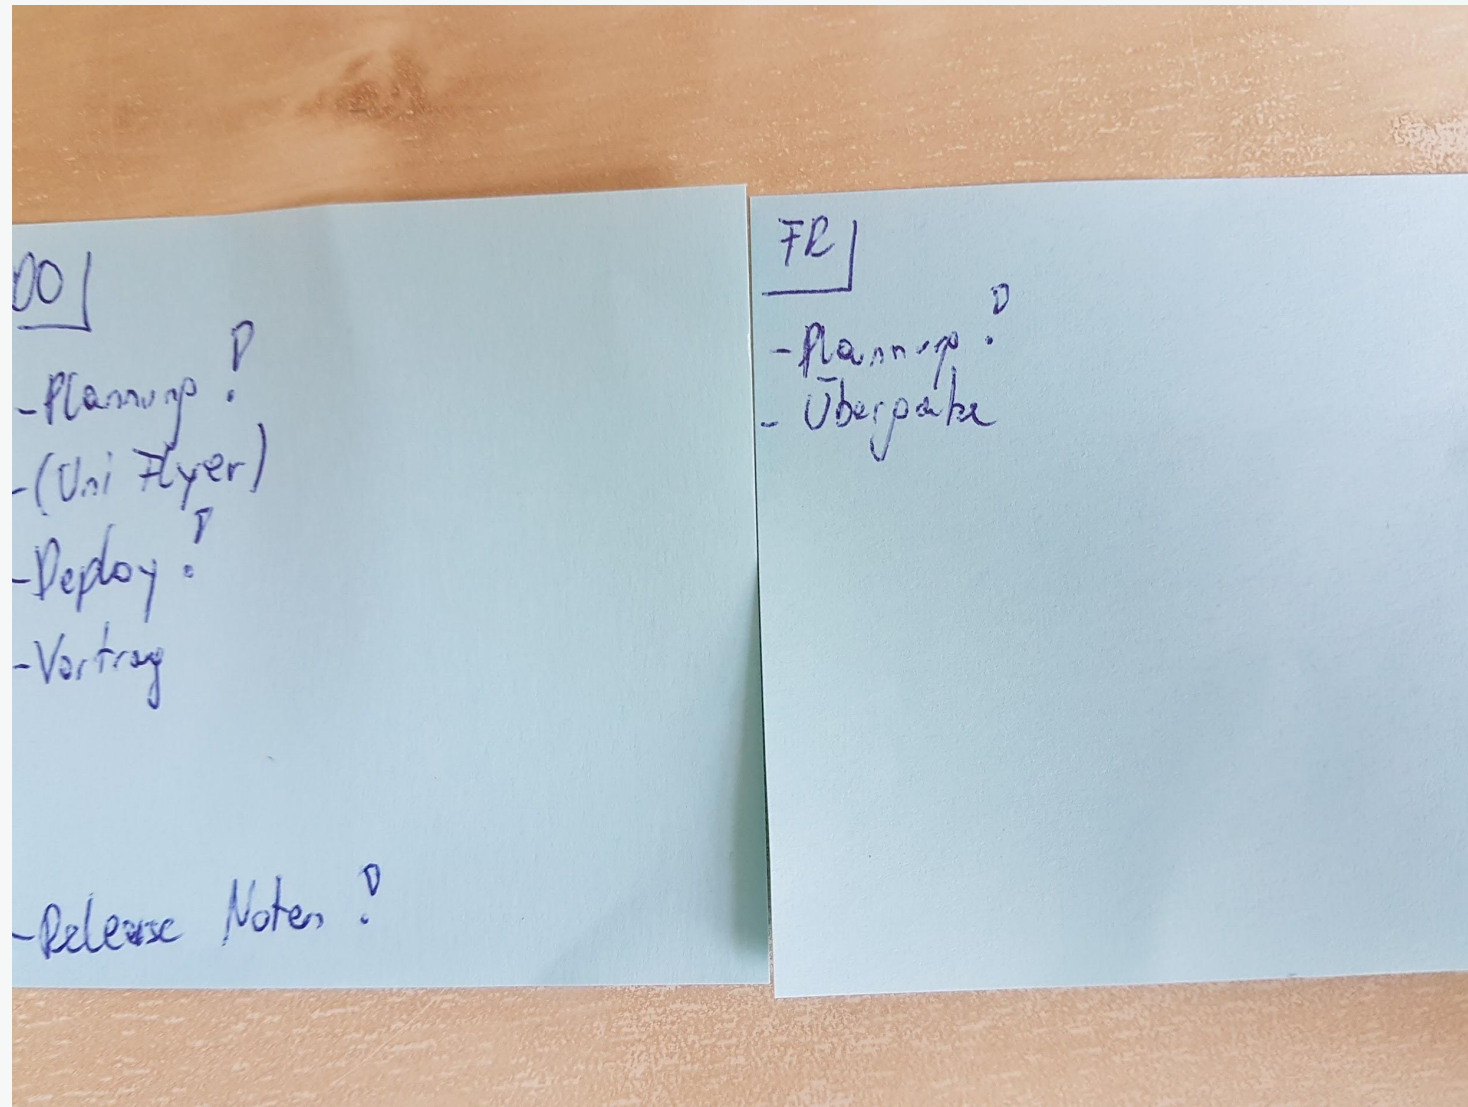 DO
- Plannung!
- (Uni Flyer)
- Deploy!
- Vortrag
- Release Noten!
FR
- Plannung!
- Übergabe